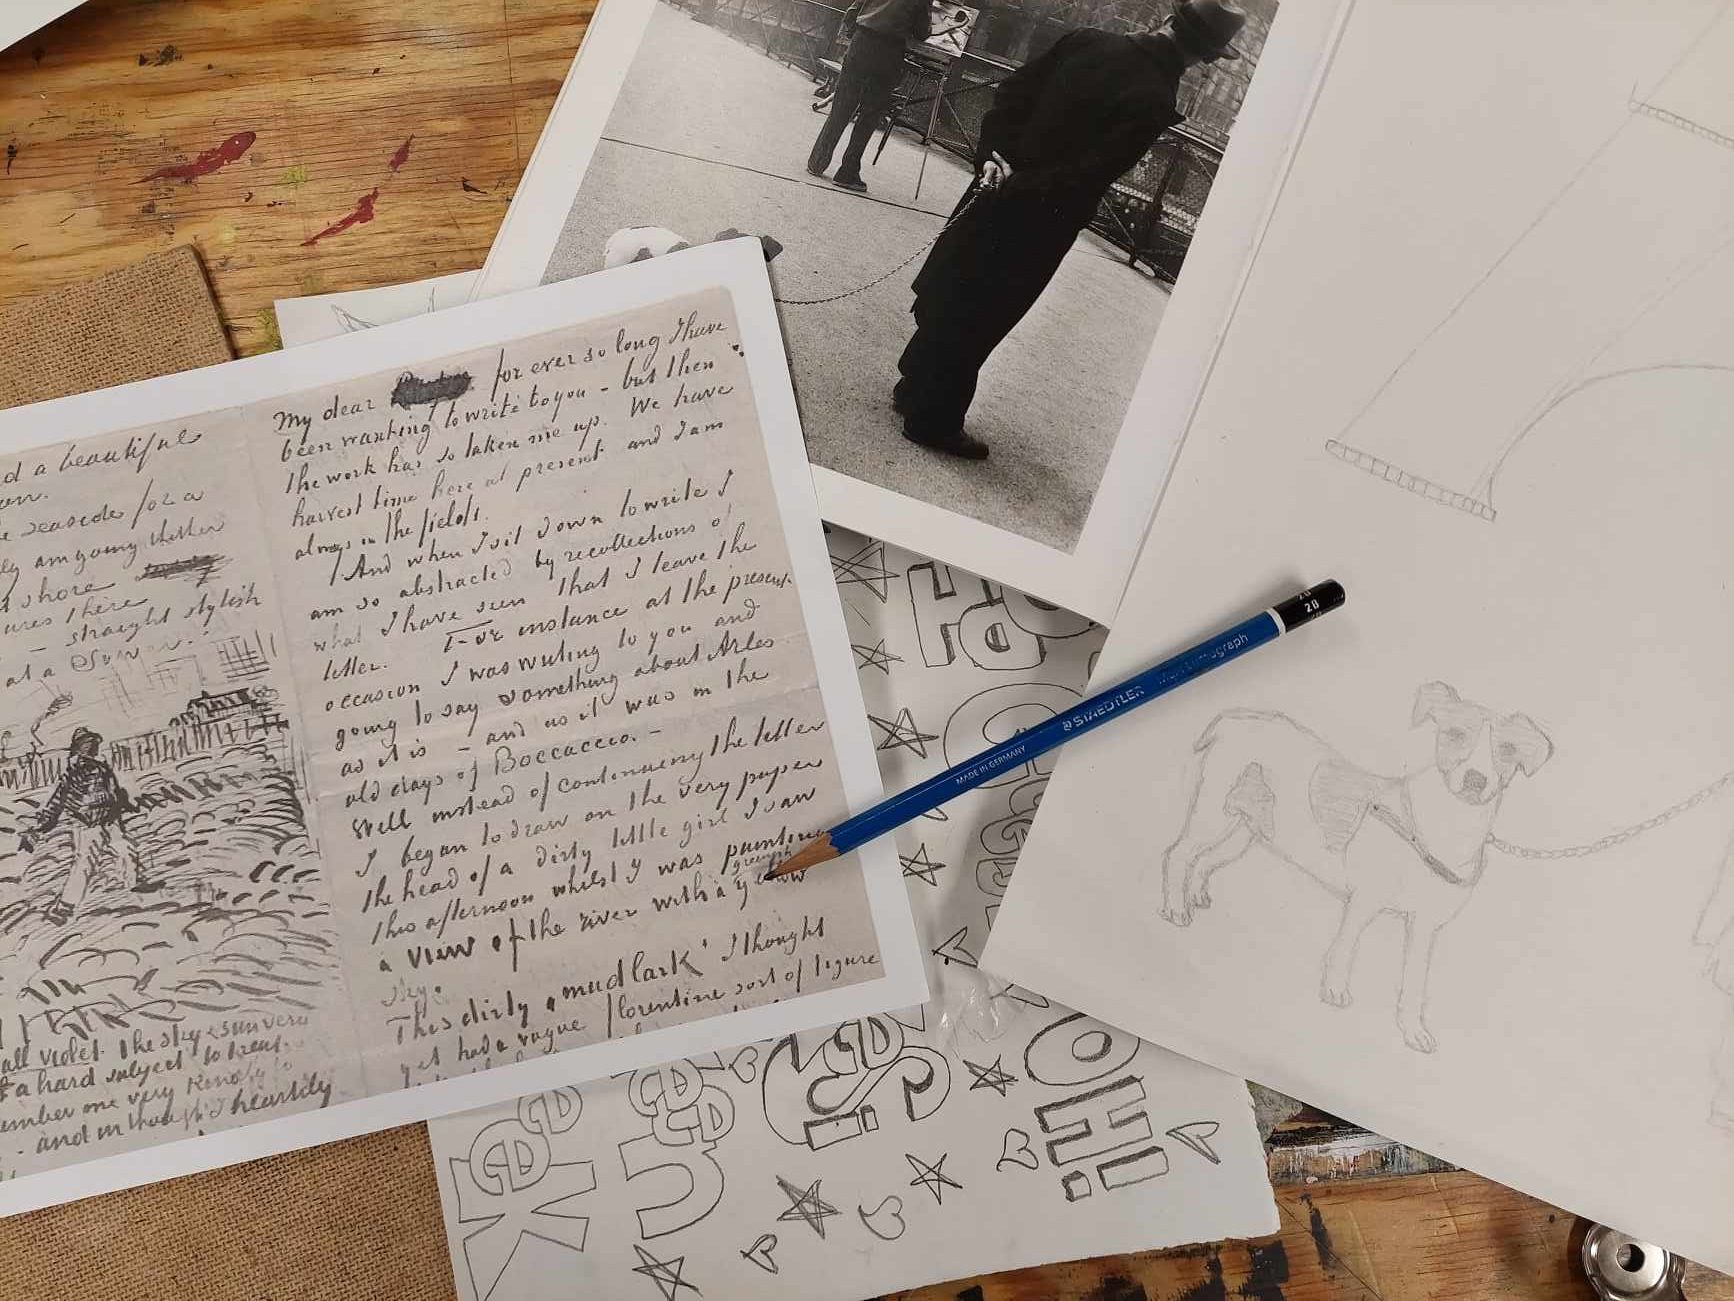 d a beautiful
seaside for a
am going thither
shore
ures there
straight stylish
at a Sower.
all violet. The sky & sun very
a hard subject to treat.
ember one very kindly to
and in thought I heartily
My dear for ever so long I have
been wanting to write to you - but then
the work has so taken me up. We have
harvest time here at present and I am
always in the fields.
And when I sit down to write I
am so abstracted by recollections of
what I have seen that I leave the
letter. For instance at the present
occasion I was writing to you and
going to say something about Arles
as it is - and as it was in the
old days of Boccaccio. -
Well instead of continuing the letter
I began to draw on the very paper
the head of a dirty little girl I saw
this afternoon whilst I was painting
a view of the river with a greenish yellow
sky.
This dirty "mudlark" I thought
yet had a vague florentine sort of figure
STAEDTLER Mars Lumograph
MADE IN GERMANY
2B
OH!